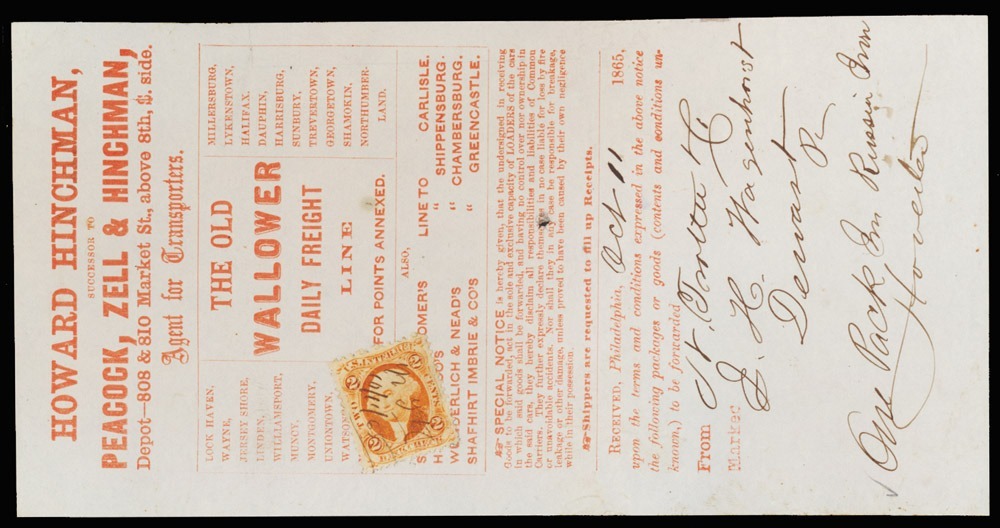 HOWARD HINCHMAN,
SUCCESSOR TO
PEACOCK, ZELL & HINCHMAN,
Depot—808 & 810 Market St., above 8th, S. side.
Agent for Transporters.
LOCK HAVEN,
WAYNE,
JERSEY SHORE,
LINDEN,
WILLIAMSPORT,
MUNCY,
MONTGOMERY,
UNIONTOWN,
WATSON
THE OLD
WALLOWER
DAILY FREIGHT
LINE
FOR POINTS ANNEXED.
MILLERSBURG,
LYKENSTOWN,
HALIFAX,
DAUPHIN,
HARRISBURG,
SUNBURY,
TREVERTOWN,
GEORGETOWN,
SHAMOKIN,
NORTHUMBER-
LAND.
ALSO,
S OMER'S LINE TO CARLISLE.
H CO'S " SHIPPENSBURG.
W DERLICH & NEAD'S " CHAMBERSBURG,
SHAFHIRT IMBRIE & CO'S " GREENCASTLE.
U.S. INTER. REV.
2 2
TWO CENTS
BANK CHECK
SPECIAL NOTICE is hereby given, that the undersigned in receiving
Goods to be forwarded, act in the sole and exclusive capacity of LOADERS of the cars
in which said goods shall be forwarded, and having no control over nor ownership in
the said cars, they hereby disclaim all responsibilities and liabilities of Common
Carriers. They further expressly declare themselves in no case liable for loss by fire
or unavoidable accidents. Nor shall they in any case be responsible for breakage,
leakage or other damage, unless proved to have been caused by their own negligence
while in their possession.
Shippers are requested to fill up Receipts.
RECEIVED, Philadelphia, Oct 11 1865,
upon the terms and conditions expressed in the above notice
the following packages or goods (contents and conditions un-
known,) to be forwarded
From N. Trotter & Co
Marked D. H. Wagenhorst
Dewart
Pa
One Pack Em Russia Iron